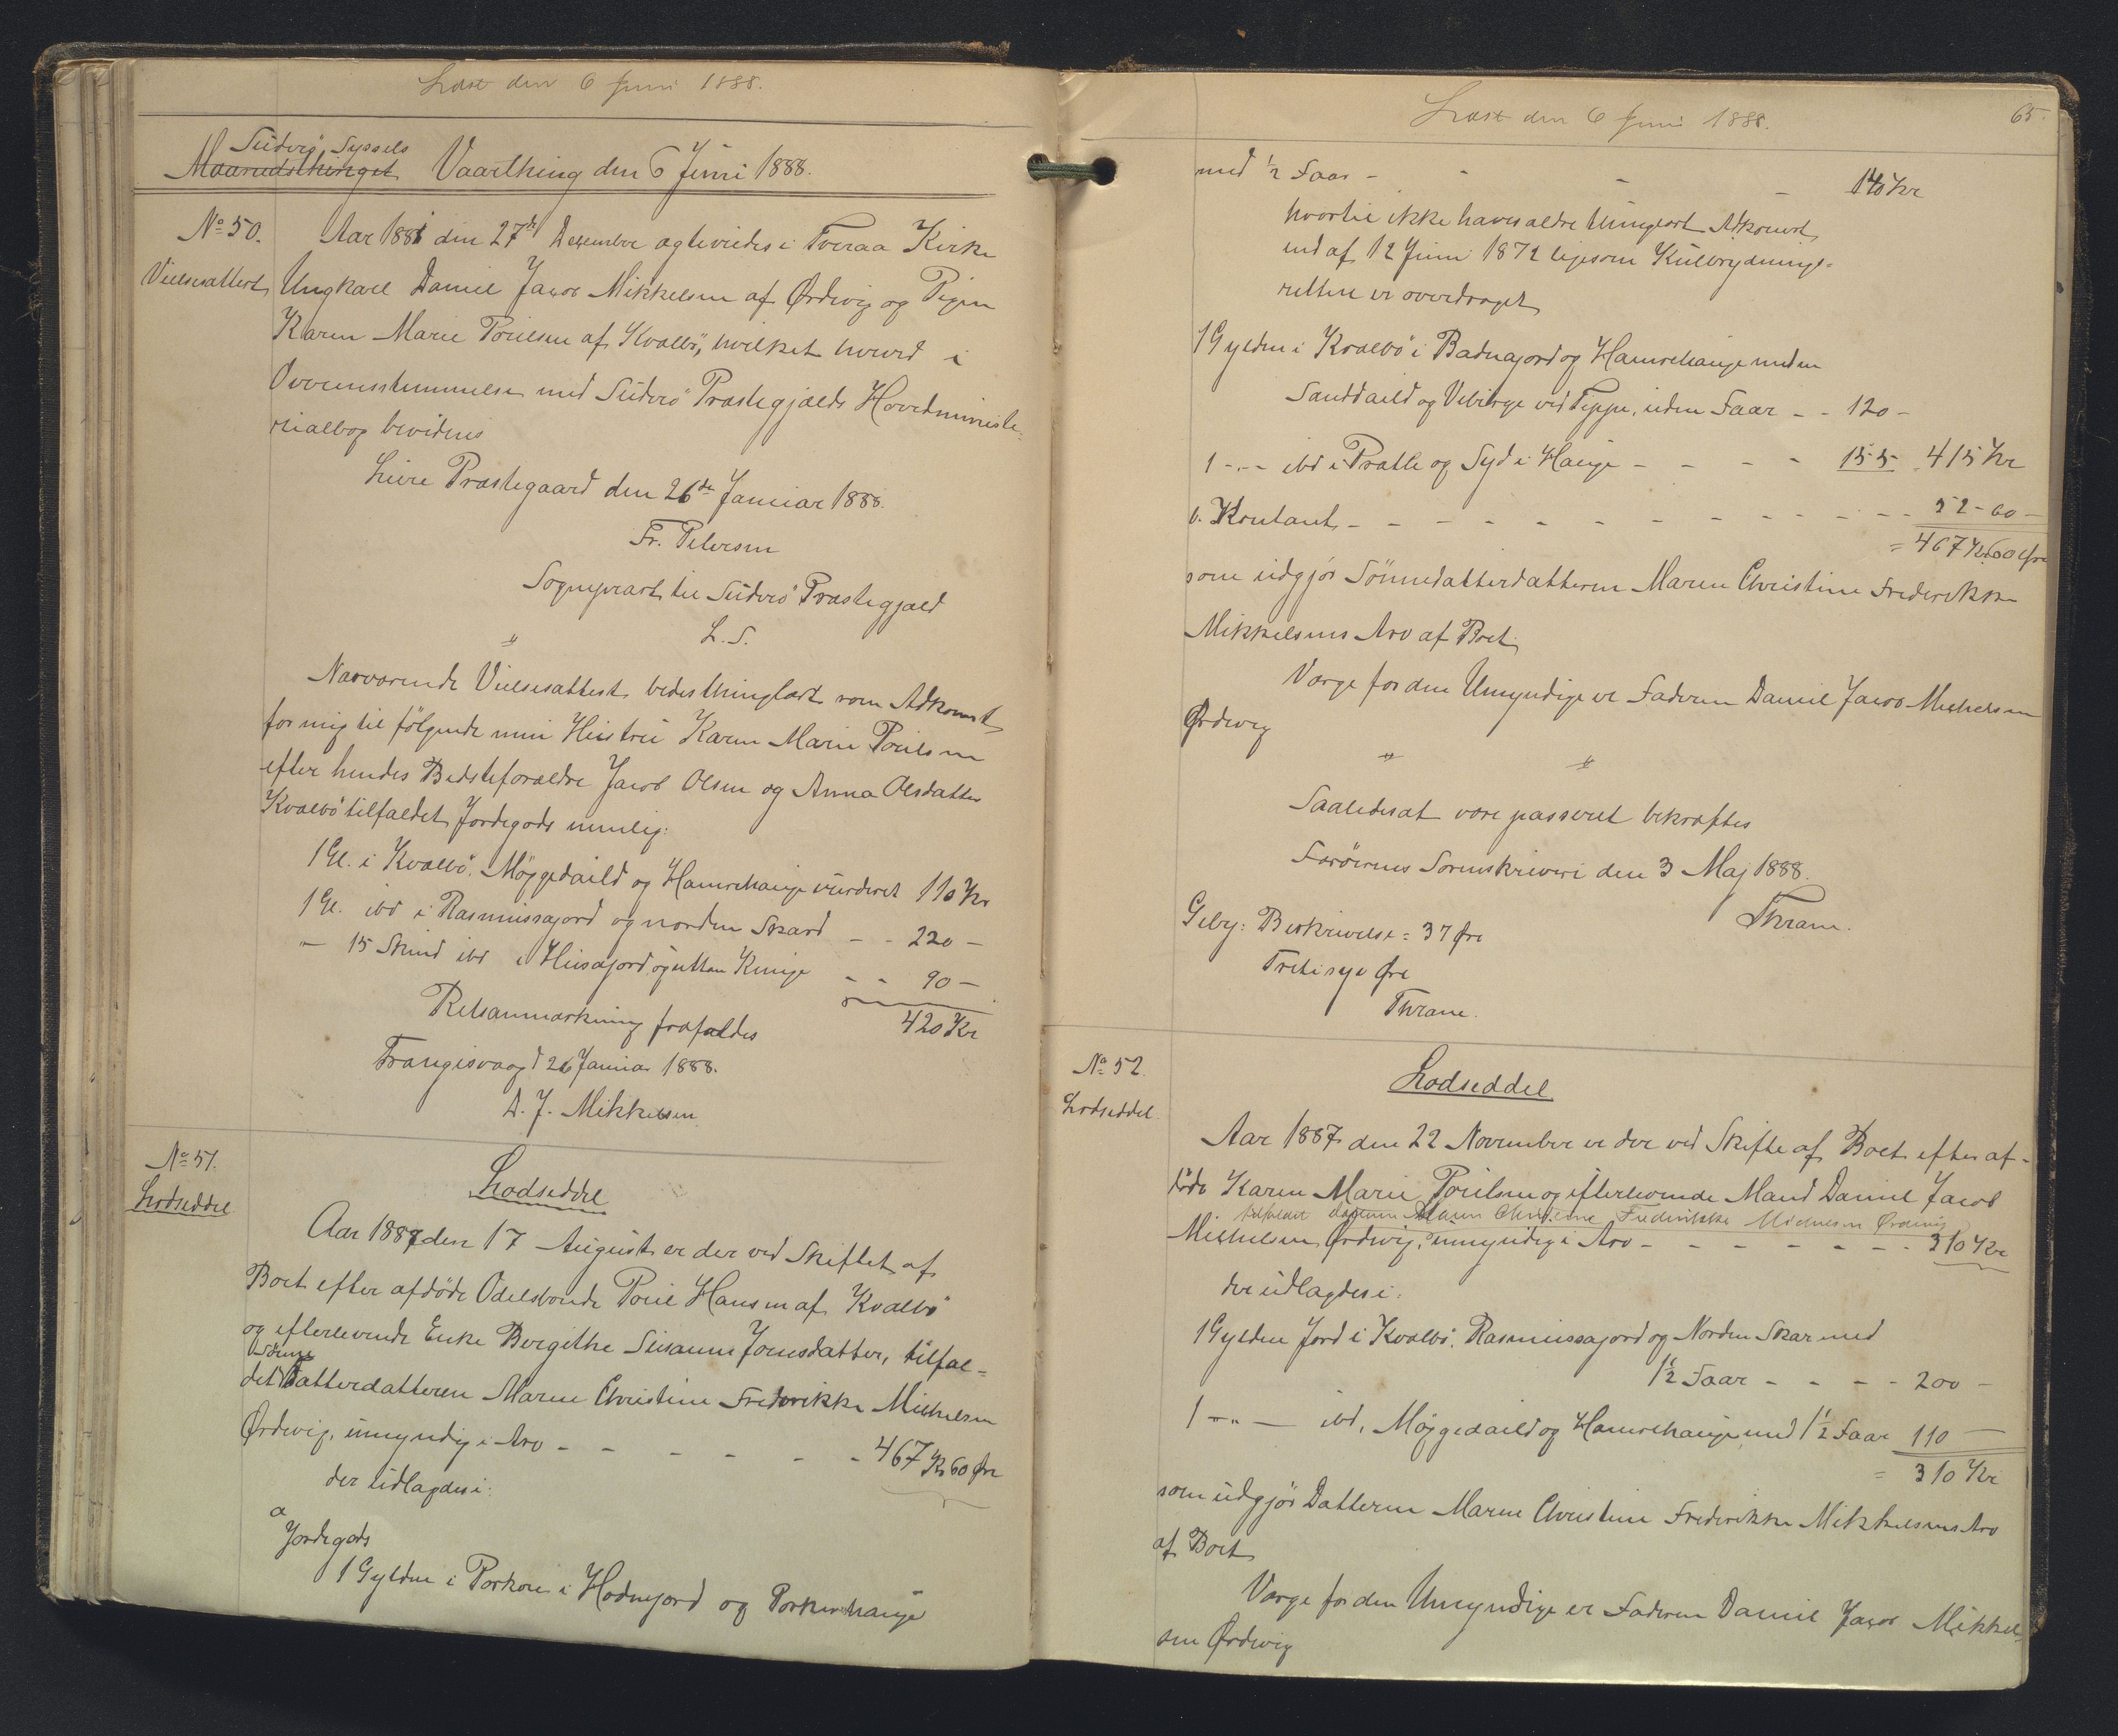 Læst den 6 Juni 1888.
Suderö Syssels
Maanedsthinget Vaarthing den 6 Juni 1888.
No 50. Aar 1881 den 27de Desember ægteviedes i Tveraa Kirke
Vielsesattest Ungkarl Daniel Jacob Mikkelsen af Ørdevig og Pigen
Karen Marie Poulsen af Kvalbö, hvilket herved i
Overensstemmelse med Suderö Præstegjælds Hovedministe-
rialbog bevidnes
Præstegaard den 26de Januar 1888.
Fr. Petersen
Sognepræst til Suderö Præstegjæld
L. S.
Nærværende Vielsesattest bedes thinglæst som Adkomst
for mig til fölgende min Hustru Karen Marie Poulsen
efter hendes Bedsteforældre Jacob Olsen og Anna Olsdatter
Kvalbö tilfaldet Jordegods nemlig:
1 Gl. i Kvalbö. Möggedaild og Hamrehauge vurderet 110 Kr
1 Gl. ibd i Rasmussajord og norden Skard - - 220 -
" - 15 Skind ibd i Husajord og uttan Kunge - - 90 -
420 Kr
Retsanmærkning frafaldes
Trangisvaag d 26 Januar 1888.
D. J. Mikkelsen
No 51.
Lodseddel
Lodseddel
Aar 1887 den 17 August er der ved Skiftet af
Boet efter afdöde Odelsbonde Poul Hansen af Kvalbö
og efterlevende Enke Bergithe Susanne Joensdatter, tilfal-
Sönne
det Datterdatteren Maren Christine Frederikke Michelsen
Ørdevig, umyndig i Arv - - - - - - 467 Kr 60 Øre
der udlagdes i:
a
Jordegods
1 Gylden i Porkere i Hodnejord og Porkerehauge
Læst den 6 Juni 1888.
65.
med 1/2 Faar - - - - 140 Kr
hvortil ikke haves ældre thinglæst Adkomst
end af 12 Juni 1872 ligesom Kulbrydnings-
retten er overdraget
1 Gylden i Kvalbö i Badnajord og Hamrehauge neden
Sanddaild og Vebirge ved Teppe, uden Faar - - 120 -
1 -"- ibd i Pratle og Syd i Hauge - - - - 155 415 Kr
b. Kontant - - - - - - - - - - - - 52 - 60 -
= 467 Kr. 60 Øre
som udgjör Sönnedatterdatteren Maren Christine Frederikke
Mikkelsens Arv af Boet.
Værge for den Umyndige er Faderen Daniel Jacob Michelsen
Ørdevig
Saaledes at være passeret bekræftes
Færöernes Sorenskriveri den 3 Maj 1888.
Thrane.
Geby: Beskrivelse = 37 Øre
Tretisyv Øre
Thrane.
No 52.
Lodseddel.
Lodseddel
Aar 1887 den 22 November er der ved Skifte af Boet efter af-
döde Karen Marie Poulsen og efterlevende Mand Daniel Jacob
tilfaldet datteren Maren Christine Frederikke Michelsen Ørdevig
Michelsen Ørdevig, umyndig i Arv - - - - - - - 310 Kr
der udlagdes i:
1 Gylden Jord i Kvalbö. Rasmussajord og Norden Skar med
1 1/2 Faar - - - - 200 -
1 -"- ibd, Möggedaild og Hamrehauge med 1 1/2 Faar 110 -
= 310 Kr
som udgjör Datteren Maren Christine Frederikke Mikkelsens Arv
af Boet
Værge for den Umyndige er Faderen Daniel Jacob Mikkel-
sen Ørdevig